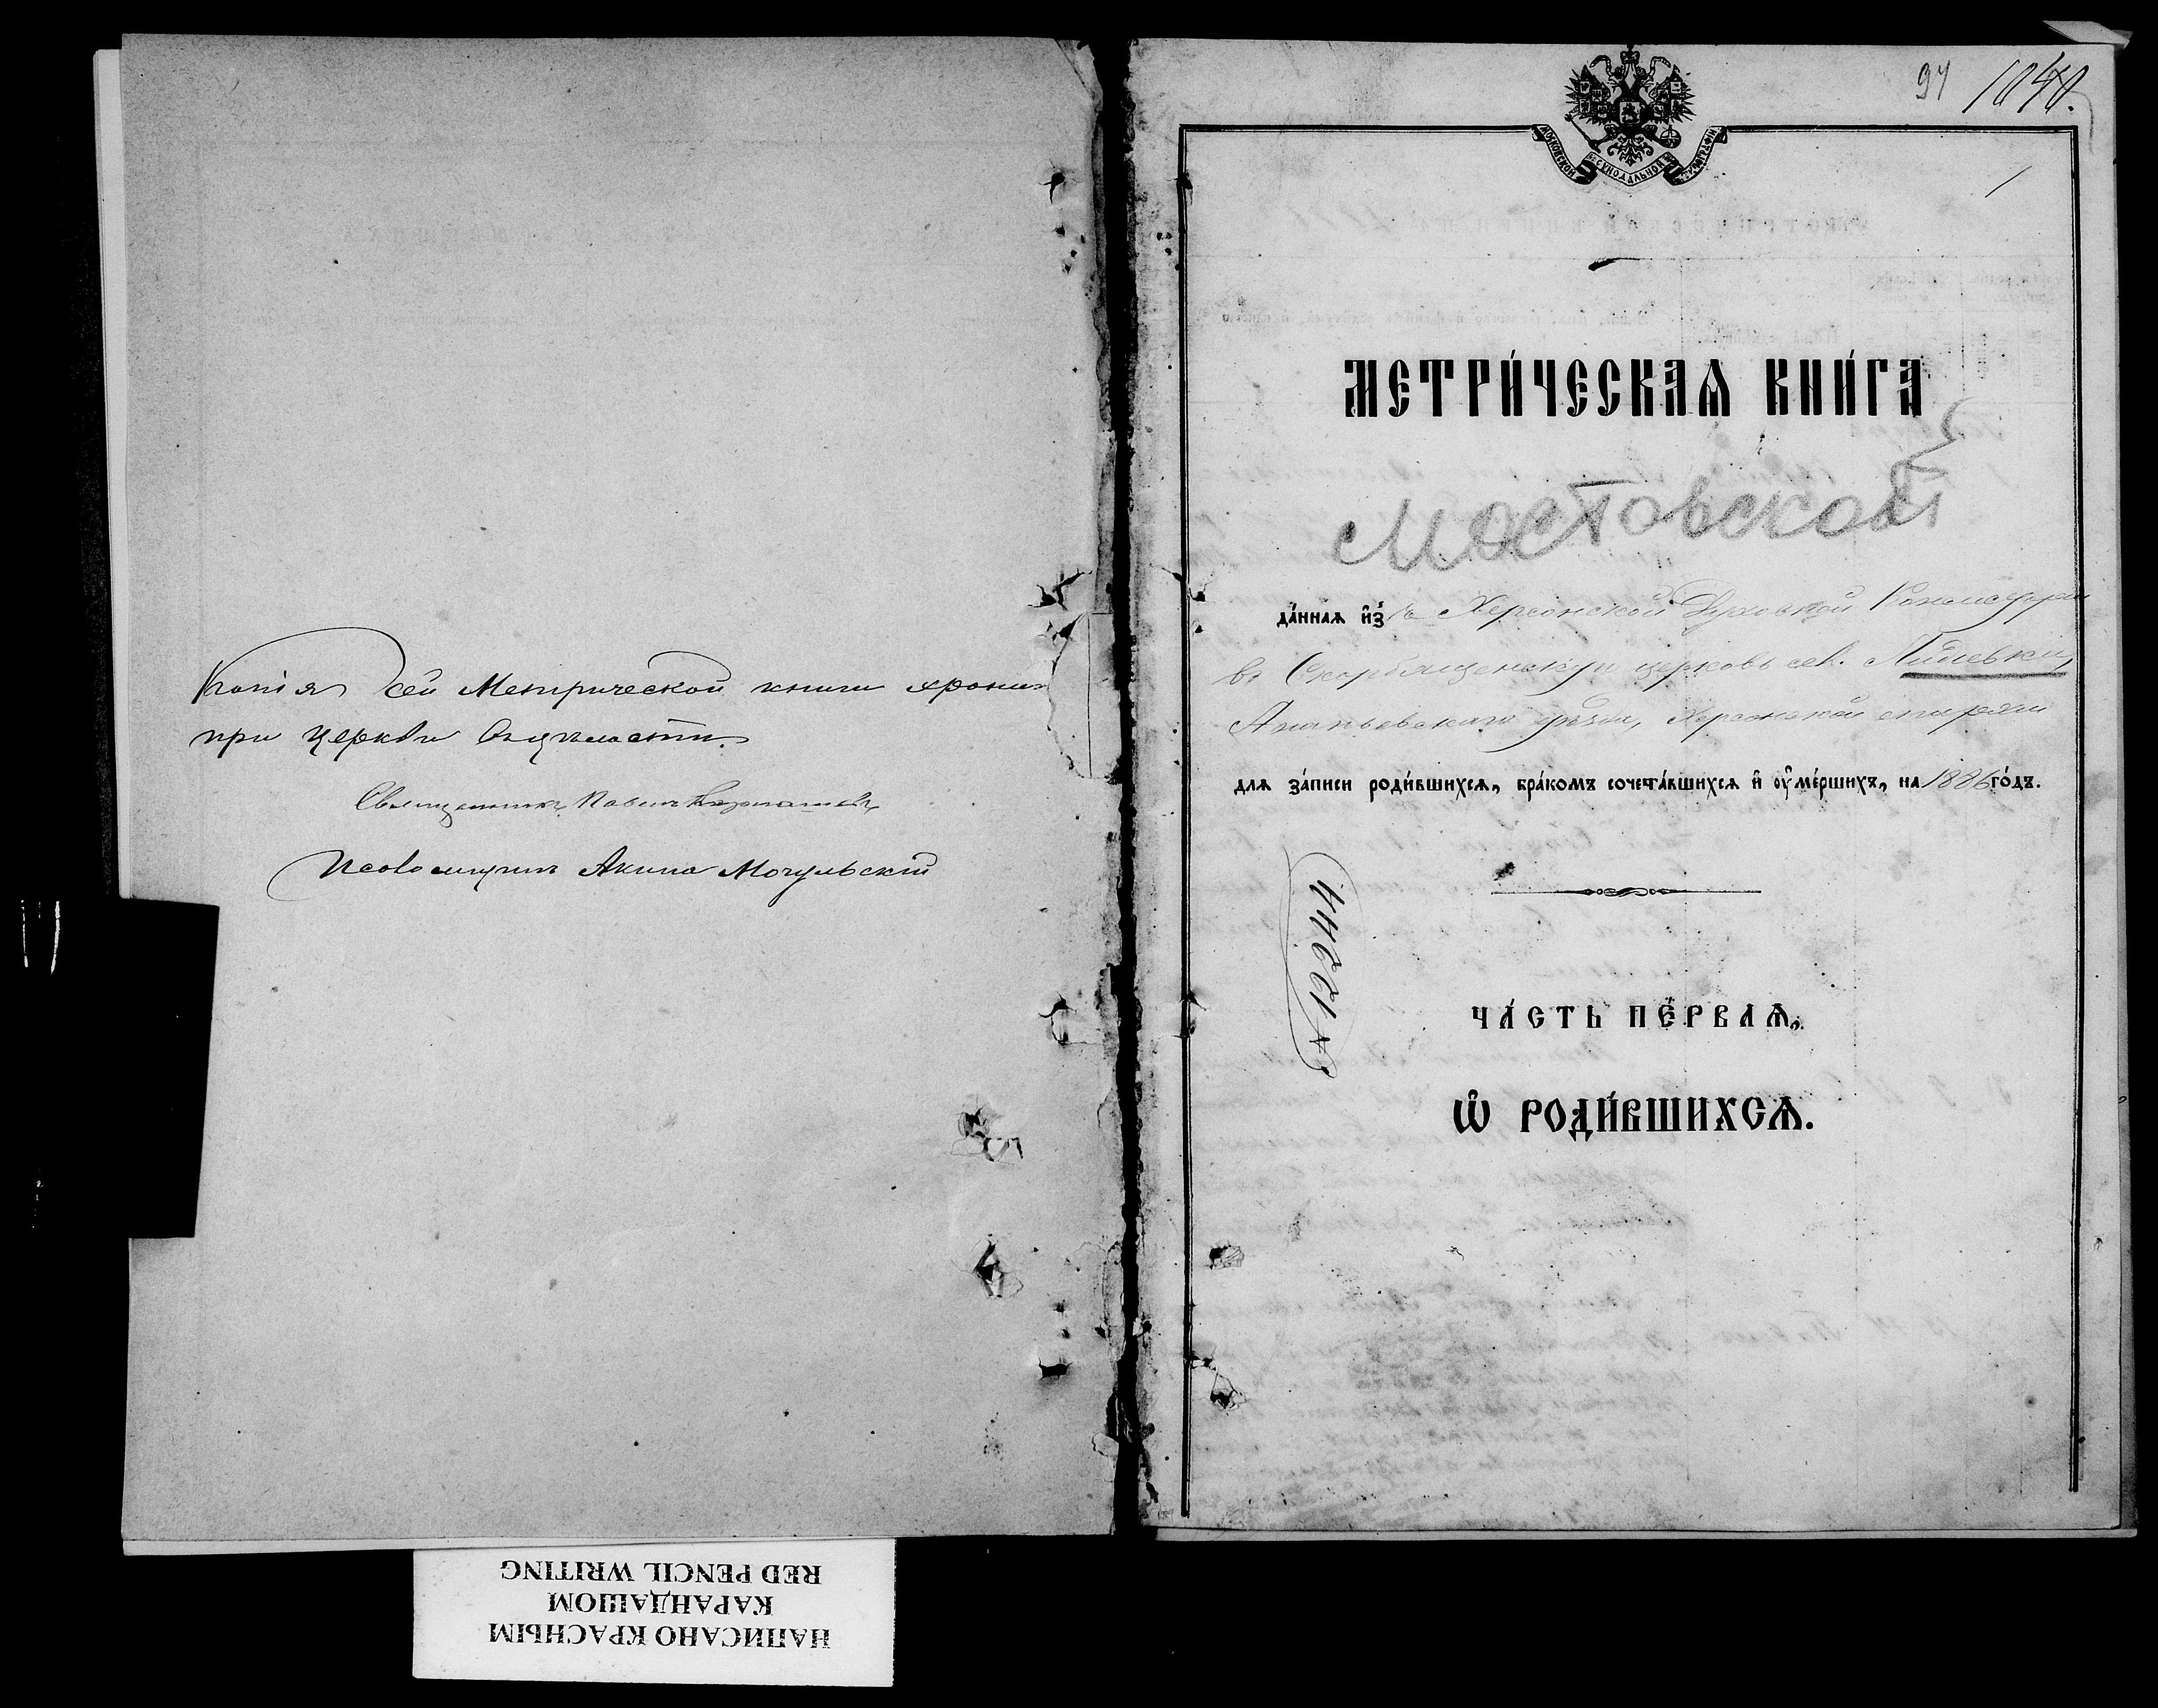 Копія сей Метрической книги хронит
при церкви въ цѣлости.
Священникъ Павелъ
Псаломщикъ Акила Мочульскій
94 1040.
1
МОСКОВСКОЙ СѴНОДАЛЬНОЙ ТИПОГРАФІИ
МЕТРИ́ЧЕСКАѦ КНИ́ГА
Мостовской
да́ннаѧ и҆з̾ Херсонской Духовной Консисторіи
въ Скорбященскую церковь сел. Лидіевки,
Ананьевскаго уѣзда, Херсонской епархіи
длѧ за́писи роди́вшихсѧ, бра́комъ сочета́вшихсѧ и҆ ѹ҆ме́ршихъ, на 1886 го́дъ.
ЧА́СТЬ ПЕ́РВАѦ,
Ѡ҆ РОДИ́ВШИХСѦ.
НАПИСАНО КРАСНЫМ
КАРАНДАШОМ
RED PENCIL WRITING